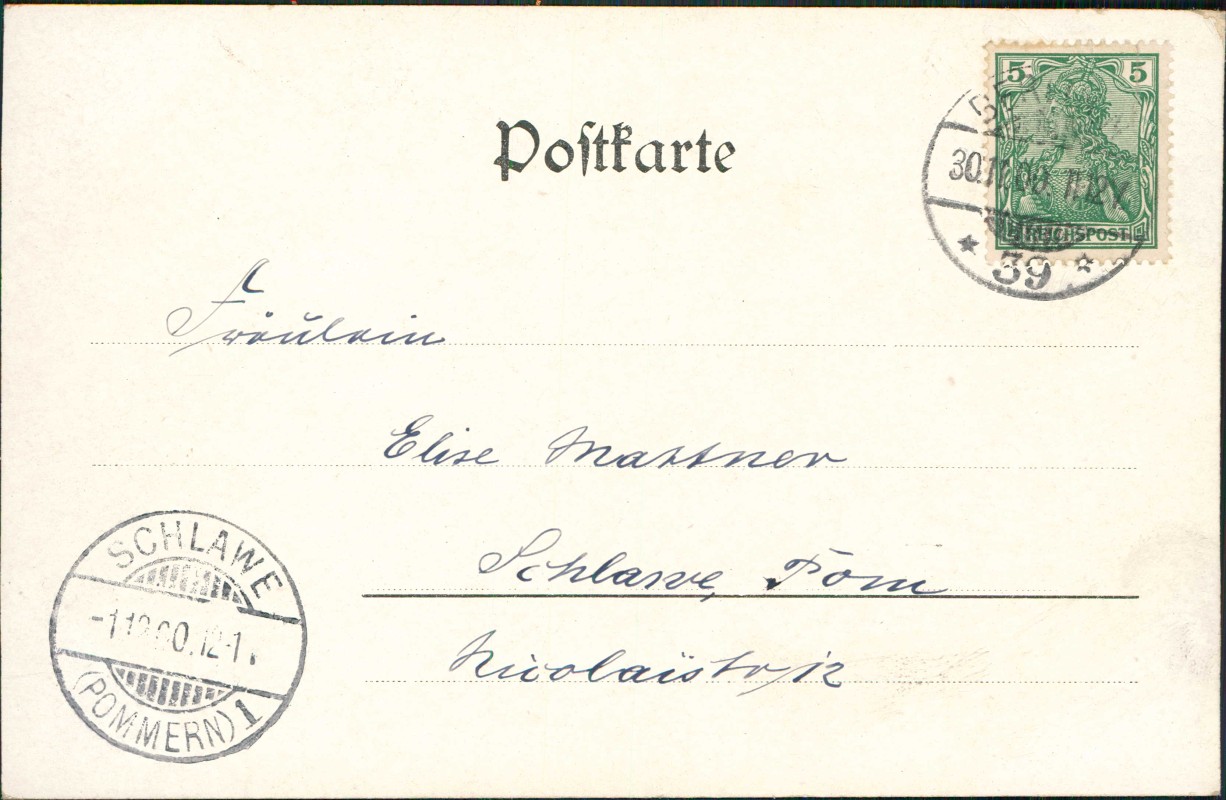 5 5
REICHSPOST
Postkarte
30.11.00. 11-12V
* 39 *
Fräulein
Elise Mattner
Schlawe, Pom
Nicolaistr 12
SCHLAWE
-1.12.00.12-1
(POMMERN) 1